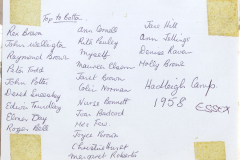 Top to Bottom
Ken Brown
John Wellington
Raymond Brown
Peter Todd
John Potts
David
Edwina Twindley
Elmer Day
Roger Bell
Ann Cornell
Rita Pauley
Myself
Maureen
Janet Brown
Colin Norman
Nurse Bennett
Jim Bedord
Mrs Few
Joyce Brown
Christine Hayet
Margaret Roberts
Jose Hill
Ann Jellings
Denise Raven
Molly Brown
Hadleigh Camp.
1958 ESSEX